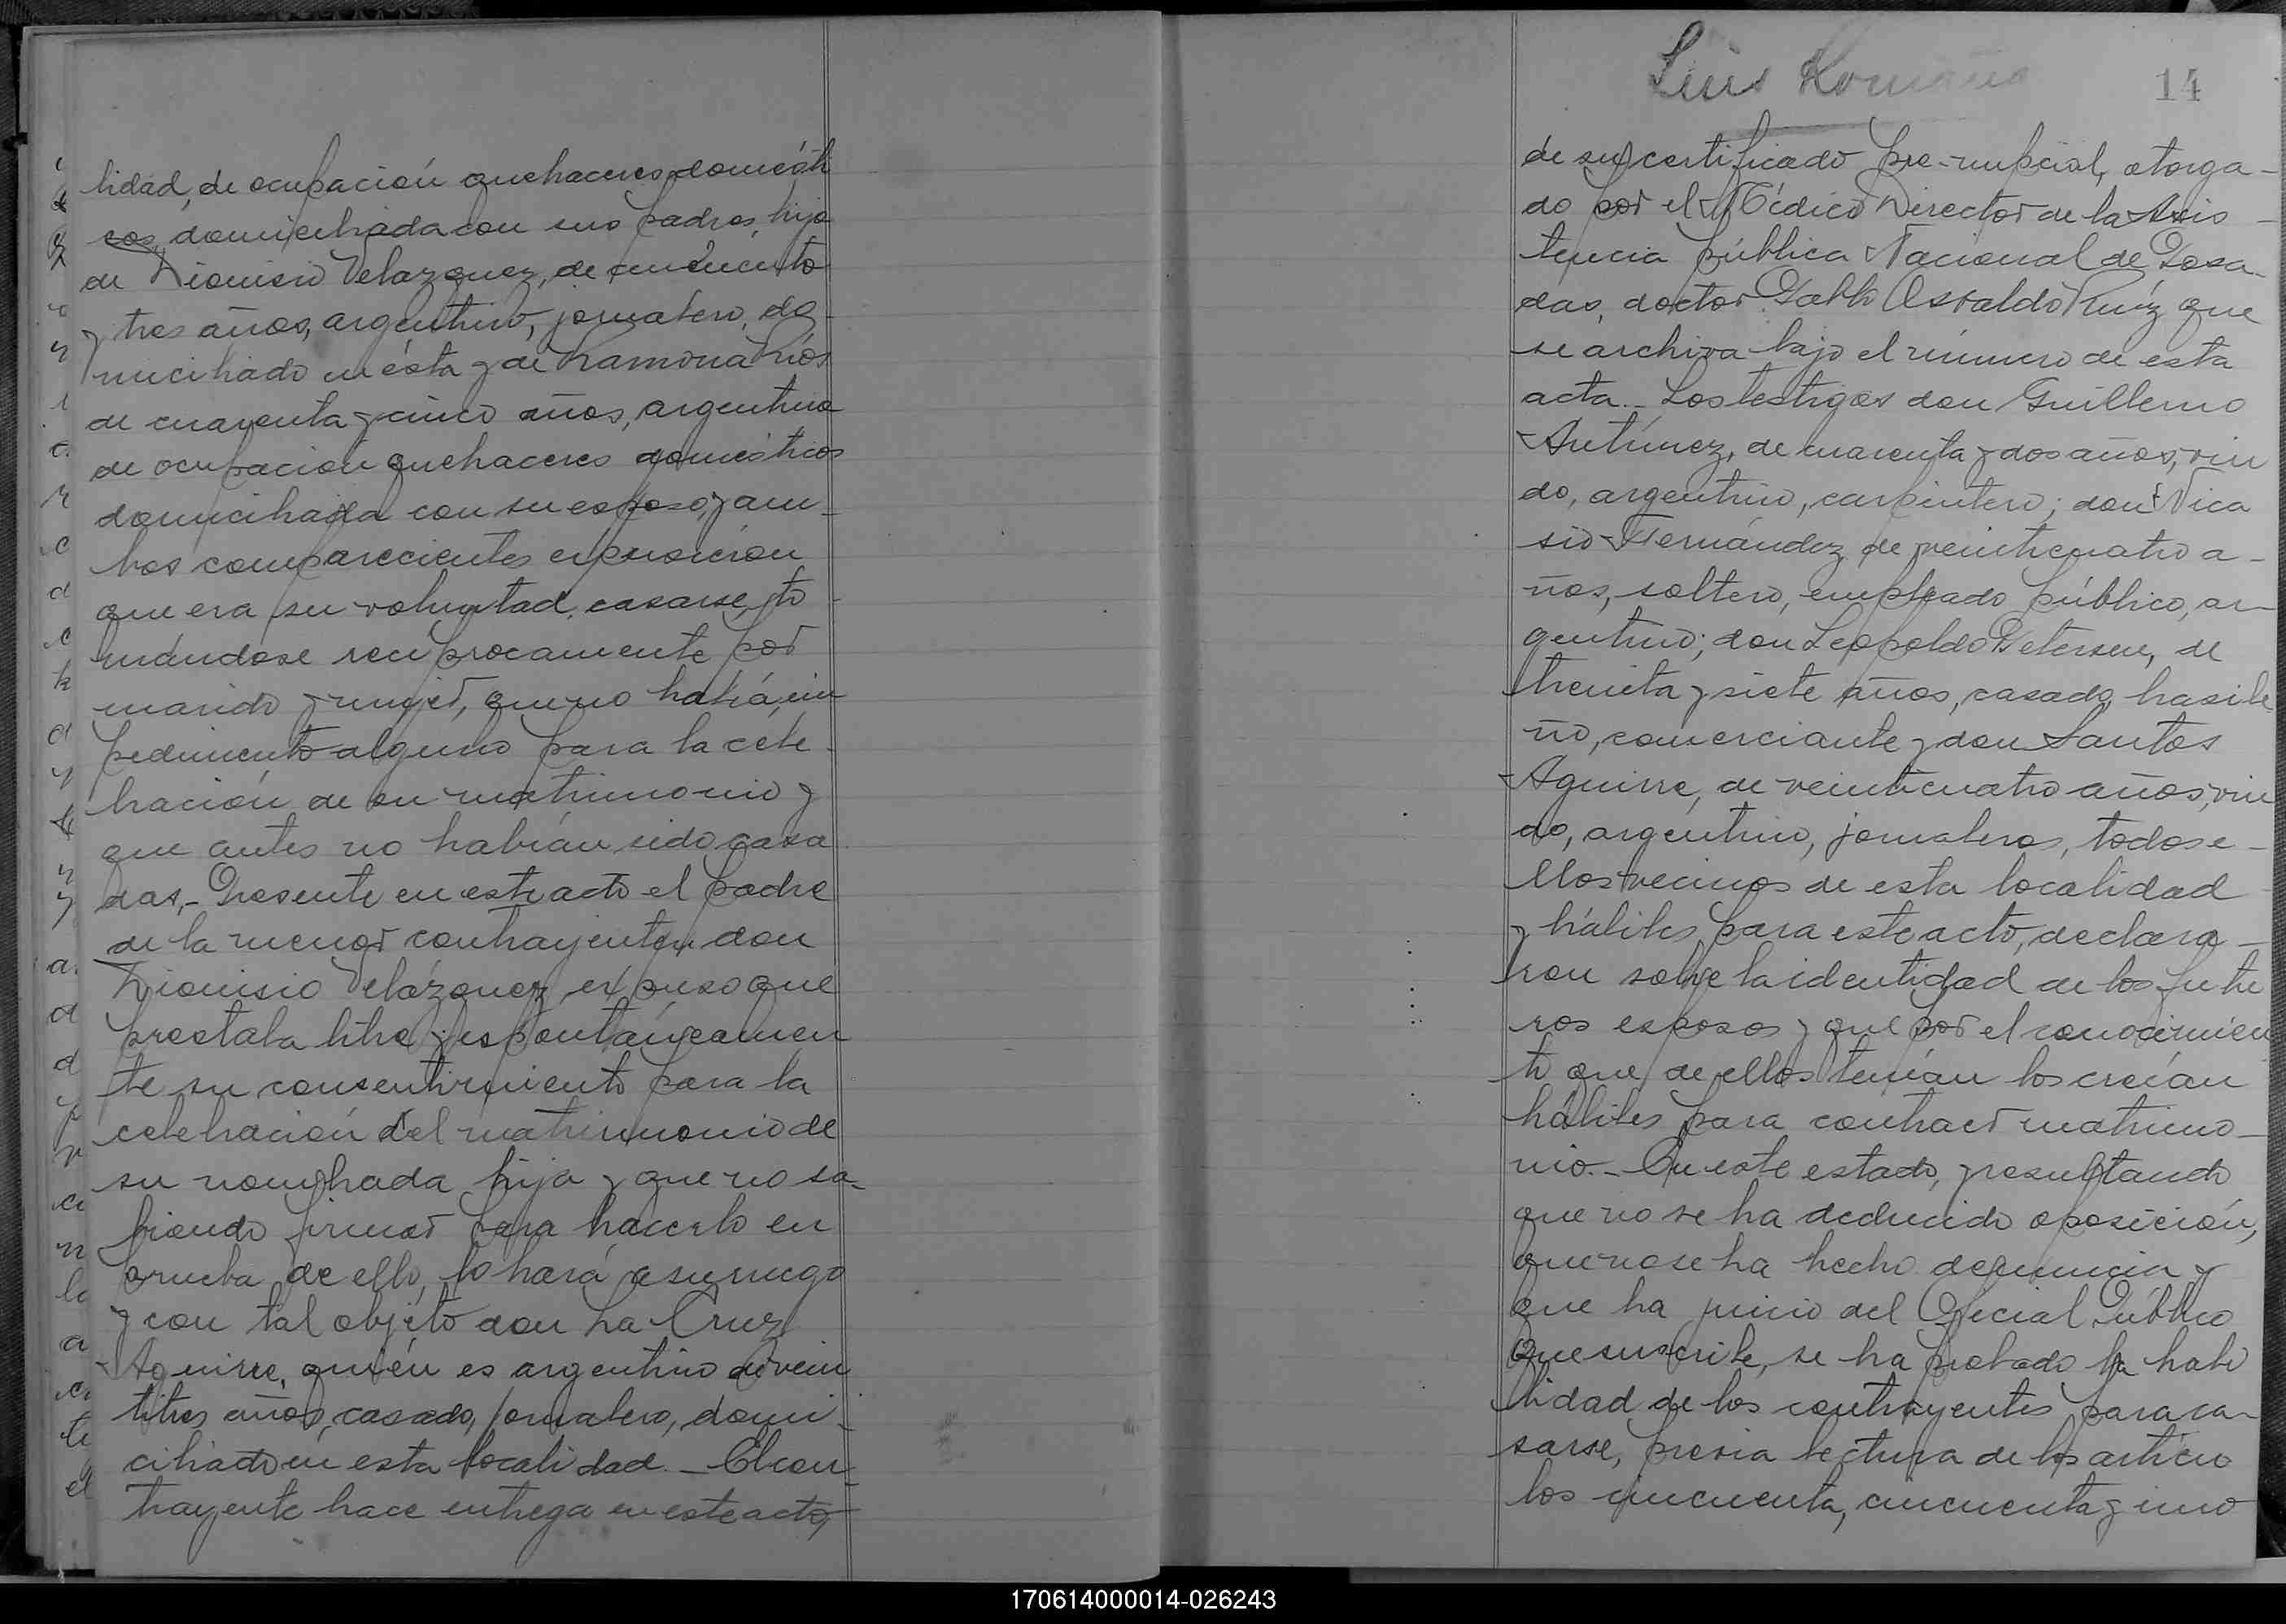 lidad, de ocupación quehaceres domésti
cos, domiciliada con sus padres, hija
de Dionisio Velazquez, de cincuenta
y tres años, argentino, jornalero, do-
miciliado en ésta y de Ramona Ríos
de cuarenta y cinco años, argentina
de ocupación quehaceres domésticos
domiciliada con su esposo, y am-
bos comparecientes expusieron
que era su voluntad casarse, to-
mándose reciprocamente por
marido y mujer, que no había, im
pedimento alguno para la cele-
bración de su matrimonio y
que antes no habían sido casa
das,- Presente en este acto el padre
de la menor contrayente, don
Dionisio Velázquez, expuso que
prestaba libre y espontáneamen
te su consentimiento para la
celebración del matrimonio de
su nombrada hija y que no sa-
biendo firmar para hacerlo en
prueba de ello, lo hará a su ruego
y con tal objeto don La Cruz
Aguirre, quién es argentino de vein
titres años, casado, jornalero, domi-
ciliado en esta localidad.- El con-
trayente hace entrega en este acto,
Luis Romano
14
de su certificado pre-nupcial, otorga-
do por el Médico Director de la Asis-
tencia pública Nacional de Posa-
das, doctor Pablo Osvaldo Ruíz que
se archiva bajo el número de esta
acta.- Los testigos don Guillermo
Antúnez, de cuarenta y dos años, viu
do, argentino, carpintero; don Nica
sio Fernández, de veinticuatro a-
ños, soltero, empleado público, ar-
gentino; don Leopoldo Petersen, de
treinta y siete años, casado, brasile
ño, comerciante y don Santos
Aguirre, de veinticuatro años, viu
do, argentino, jornaleros, todos e-
llos vecinos de esta localidad
y hábiles para este acto, declara-
ron sobre la identidad de los futu
ros esposos y que por el conocimien
to que de ellos tenían los creían
hábiles para contraer matrimo-
nio.- En este estado, y resultando
que no se ha deducido oposición,
que no se ha hecho denuncia y
que ha juicio del Oficial Público
que suscribe, se ha probado la habi
lidad de los contrayentes para ca-
sarse, previa lectura de los artícu
los cincuenta, cincuenta y uno
170614000014-026243